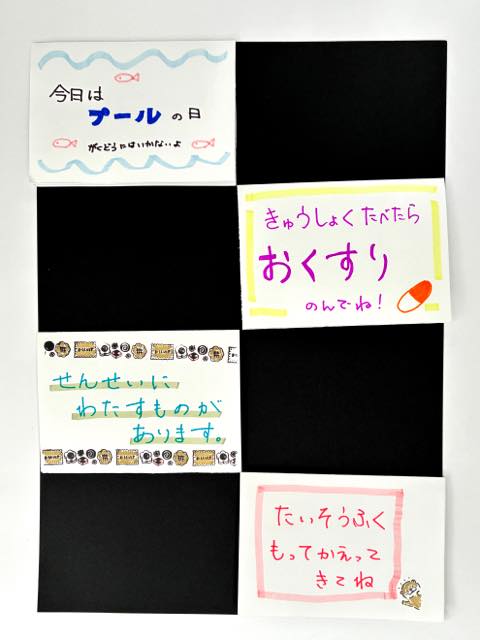 今日は
プールの日
がくどうにはいかないよ
きゅうしょくたべたら
おくすり
のんでね!
せんせいに
わたすものが
あります。
たいそうふく
もってかえって
きてね